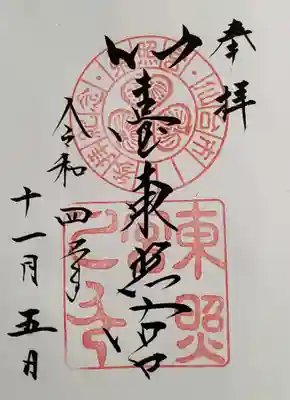 奉拝
仙臺東照宮
令和四年
十一月五日
東照宮之印